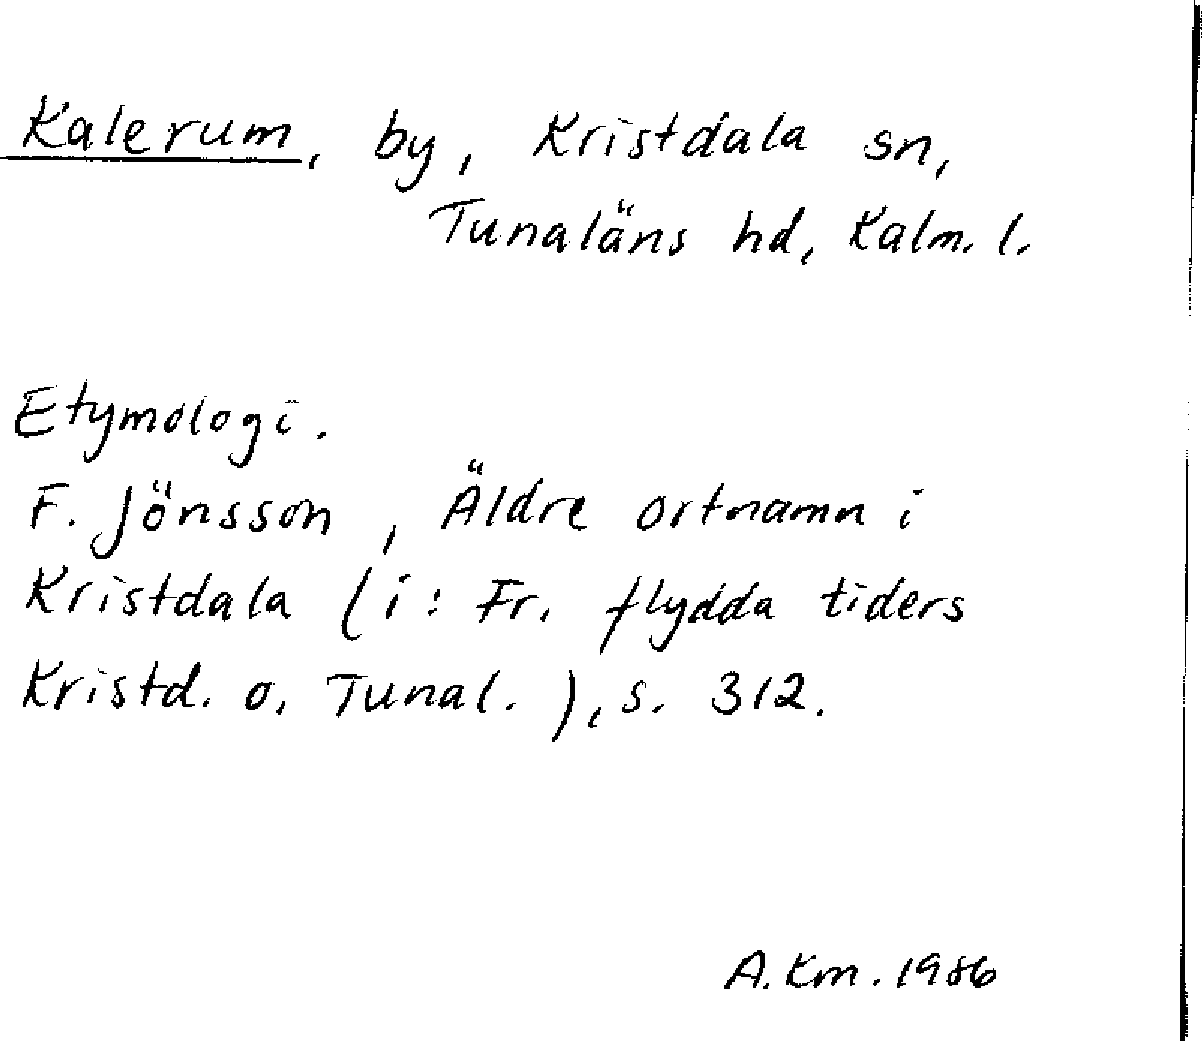 Kalerum, by, Kristdala sn,
Tunaläns hd, Kalm. l.
Etymologi.
F. Jönsson, Äldre ortnamn i
Kristdala (i: Fr. flydda tiders
Kristd. o. Tunal.), s. 312.
A. Km. 1986